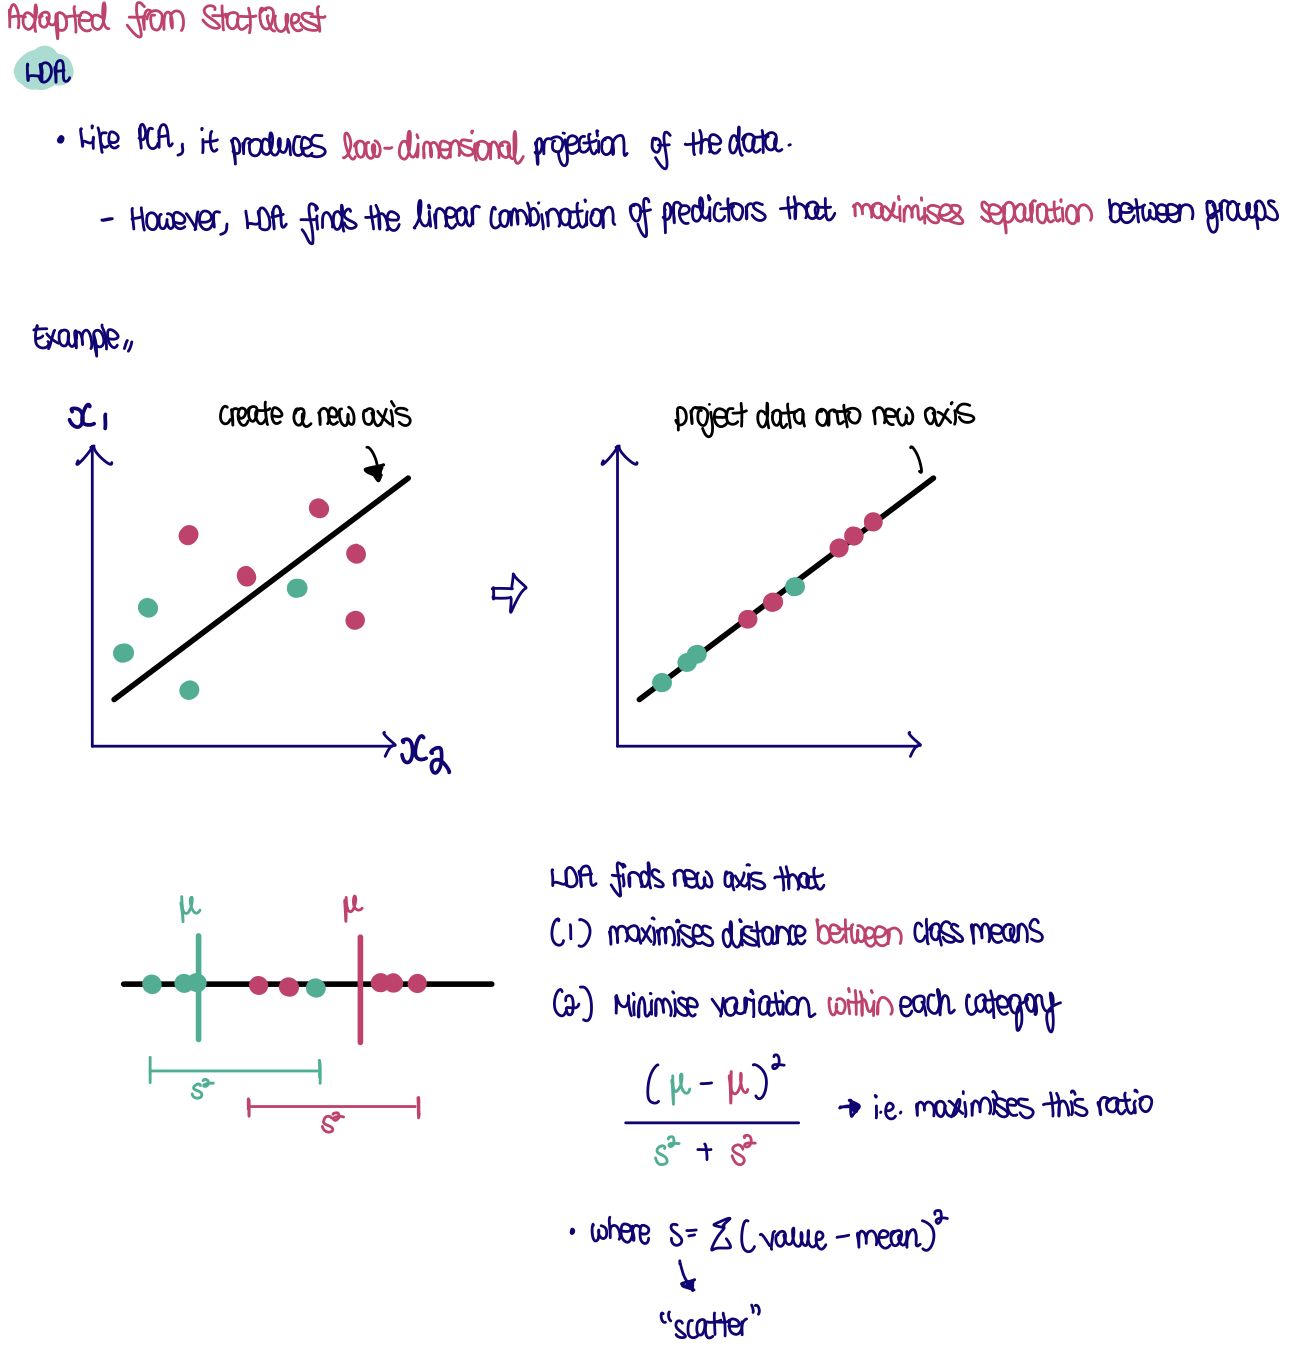 Adapted from StatQuest
LDA
• Like PCA, it produces low-dimensional projection of the data.
- However, LDA finds the linear combination of predictors that maximises separation between groups
Example,,
x1
create a new axis
project data onto new axis
x2
LDA finds new axis that
μ μ
(1) maximises distance between class means
(2) Minimise variation within each category
s²
s²
(μ - μ)²
s² + s²
→ i.e. maximises this ratio
• where s = Σ(value - mean)²
"scatter"